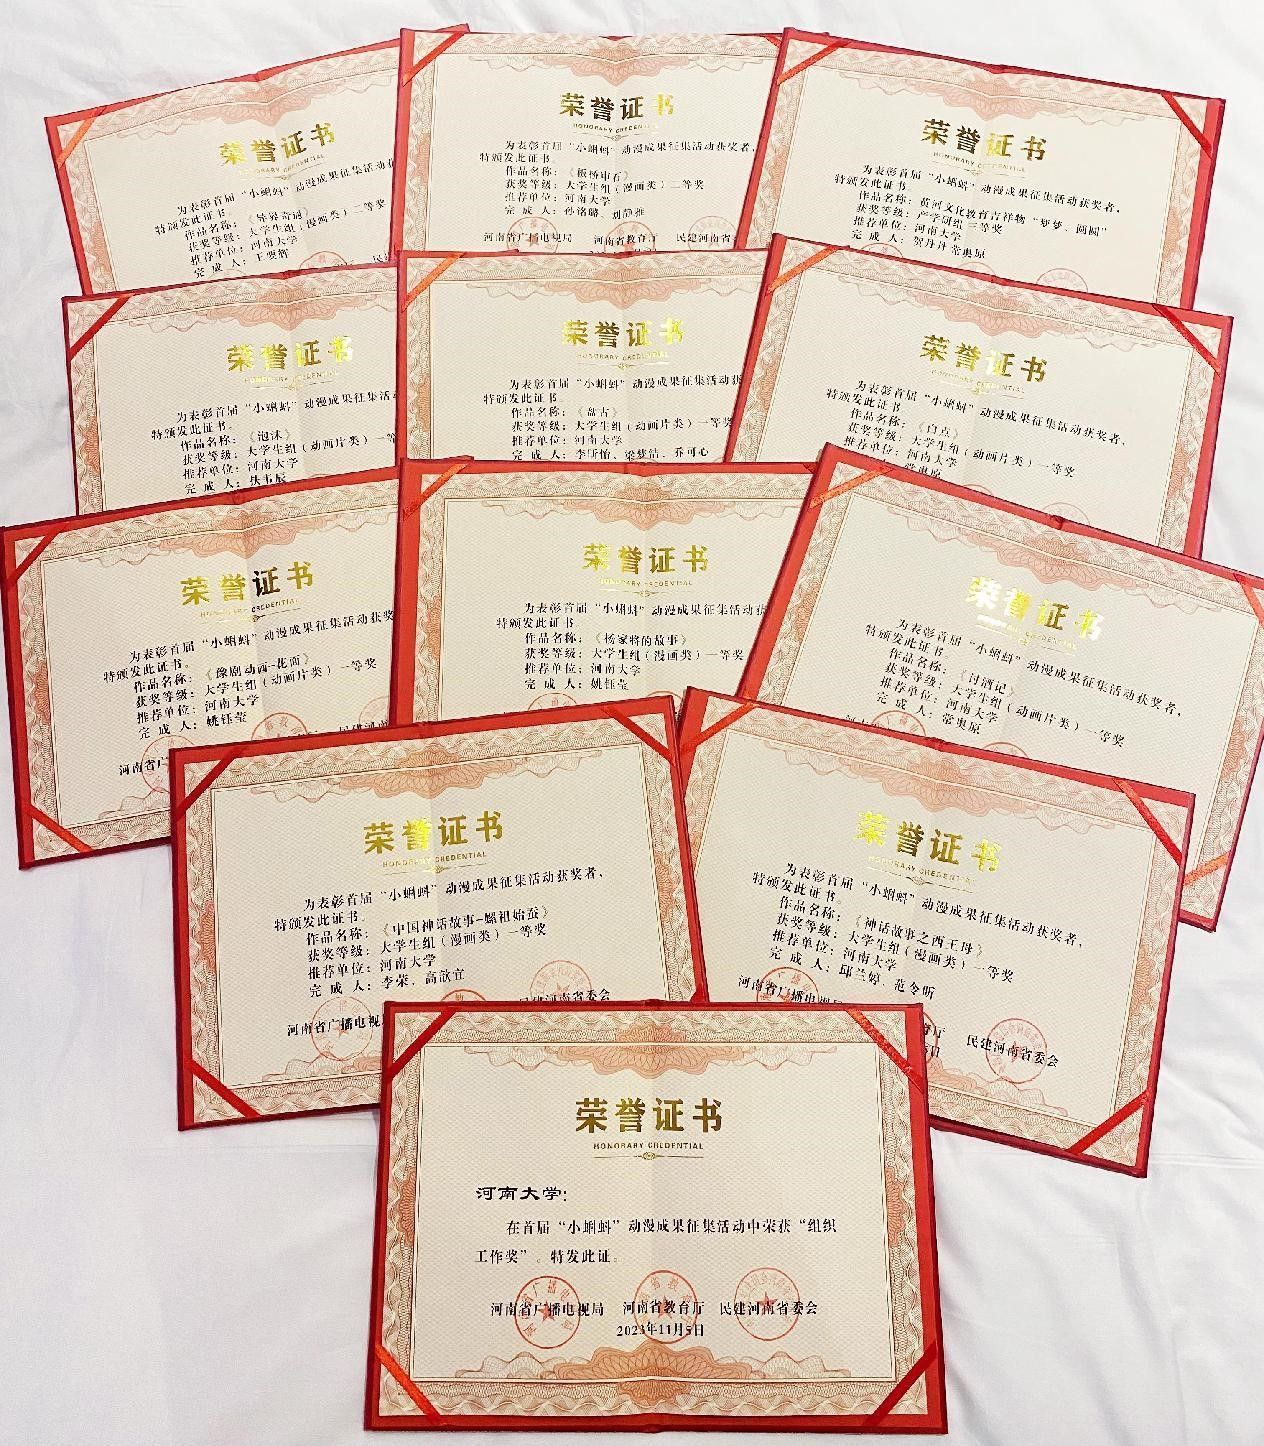 荣誉证书
HONORARY CREDENTIAL
为表彰首届“小蝌蚪”动漫成果征集活动获
特颁发此证书。
作品名称：《异界奇冠》
获奖等级：大学生组（漫画类）二等奖
推荐单位：河南大学
完 成 人：王要辉
荣誉证书
HONORARY CREDENTIAL
为表彰首届“小蝌蚪”动漫成果征集活动获奖者，
特颁发此证书。
作品名称：《板桥审石》
获奖等级：大学生组（漫画类）二等奖
推荐单位：河南大学
完 成 人：孙铭璐、刘静雅
河南省广播电视局 河南省教育厅 民建河南省
荣誉证书
HONORARY CREDENTIAL
为表彰首届“小蝌蚪”动漫成果征集活动获奖者，
特颁发此证书。
作品名称：黄河文化教育吉祥物“梦梦、圆圆”
获奖等级：产学研组三等奖
推荐单位：河南大学
完 成 人：贺丹丹 常奥原
荣誉证书
HONORARY CREDENTIAL
为表彰首届“小蝌蚪”动漫成果征集活
特颁发此证书。
作品名称：《泡沫》
获奖等级：大学生组（动画片类）一等
推荐单位：河南大学
完 成 人：扶韦辰
荣誉证书
HONORARY CREDENTIAL
为表彰首届“小蝌蚪”动漫成果征集活动获
特颁发此证书。
作品名称：《盘古》
获奖等级：大学生组（动画片类）一等奖
推荐单位：河南大学
完 成 人：李昕怡、梁梦洁、乔可心
荣誉证书
HONORARY CREDENTIAL
为表彰首届“小蝌蚪”动漫成果征集活动获奖者，
特颁发此证书。
作品名称：《白点》
获奖等级：大学生组（动画片类）一等奖
推荐单位：河南大学
常奥原
荣誉证书
HONORARY CREDENTIAL
为表彰首届“小蝌蚪”动漫成果征集活动获奖
特颁发此证书。
作品名称：《豫剧动画-花面》
获奖等级：大学生组（动画片类）一等奖
推荐单位：河南大学
完 成 人：姚钰莹
河南省广 民建河南
荣誉证书
HONORARY CREDENTIAL
为表彰首届“小蝌蚪”动漫成果征集活动获
特颁发此证书。
作品名称：《杨家将的故事》
获奖等级：大学生组（漫画类）一等奖
推荐单位：河南大学
完 成 人：姚钰莹
荣誉证书
HONORARY CREDENTIAL
为表彰首届“小蝌蚪”动漫成果征集活动获奖者，
特颁发此证书。
作品名称：《讨酒记》
获奖等级：大学生组（动画片类）一等奖
推荐单位：河南大学
完 成 人：常奥原
荣誉证书
HONORARY CREDENTIAL
为表彰首届“小蝌蚪”动漫成果征集活动获奖者，
特颁发此证书。
作品名称：《中国神话故事-嫘祖始蚕》
获奖等级：大学生组（漫画类）一等奖
推荐单位：河南大学
完 成 人：李荣、高歆宜
河南省广播电视局 民建河南省委会
荣誉证书
HONORARY CREDENTIAL
为表彰首届“小蝌蚪”动漫成果征集活动获奖者，
特颁发此证书。
作品名称：《神话故事之西王母》
获奖等级：大学生组（漫画类）一等奖
推荐单位：河南大学
完 成 人：邱兰婷、范令昕
河南省广播电视局 育厅 民建河南省委会
日
荣誉证书
HONORARY CREDENTIAL
河南大学：
在首届“小蝌蚪”动漫成果征集活动中荣获“组织
工作奖”。特发此证。
河南省广播电视局 河南省教育厅 民建河南省委会
2023年11月5日